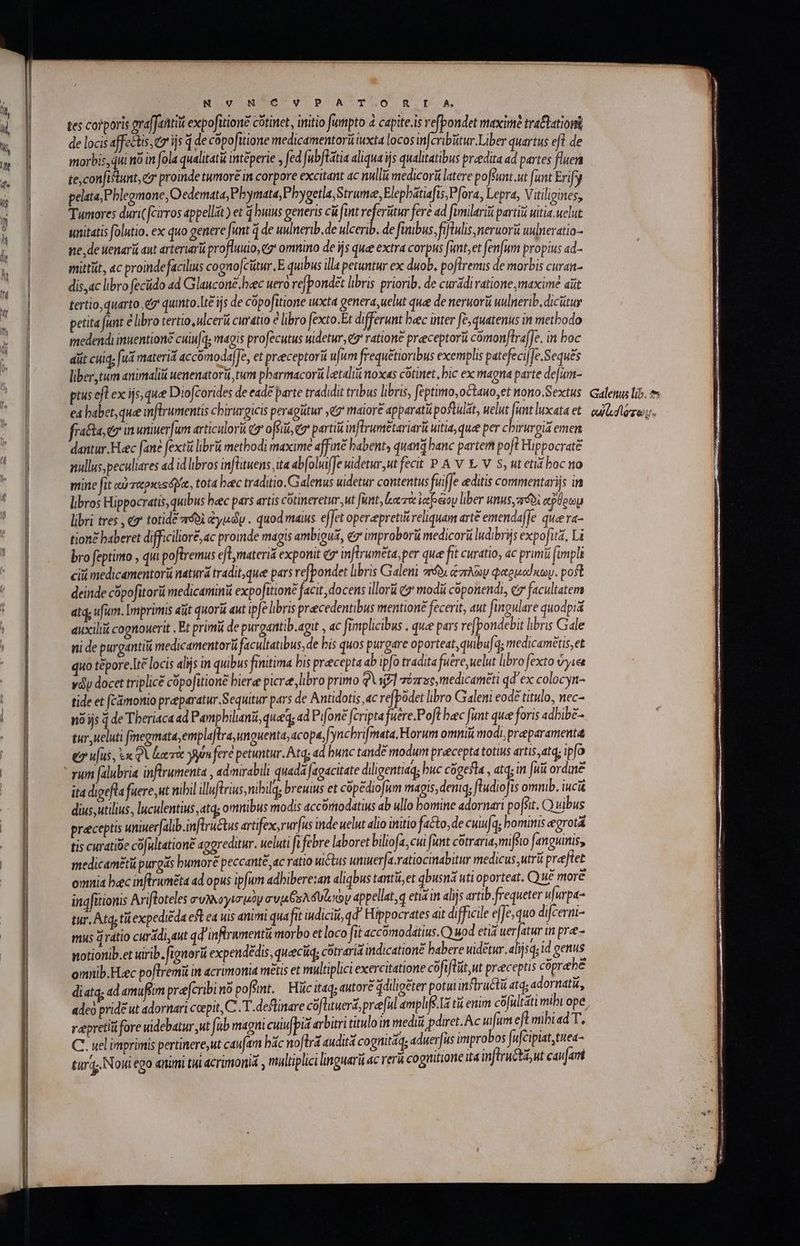 N V N C V P A T O R I A.
tes corporis graſſantiū expoſitionē cōtinet, initio ſumpto à capite.is reſpondet maximè tractationi
de locis affectis, & ijs q̄ de cōpoſitione medicamentorū iuxta locos inſcribūtur. Liber quartus eſt de
morbis, qui nō in ſola qualitatū intēperie, ſed ſubſtātia aliqua ijs qualitatibus prædita ad partes fluen
te, conſiſtunt, & proinde tumorē in corpore excitant ac nullū medicorū latere poſſunt. ut ſunt Eriſy
pelata, Phlegmone, Oedemata, Phymata, Phygetla, Strumæ, Elephātiaſis, Pſora, Lepra, Vitiligines,
Tumores duri (ſcirros appellāt) et q̄ huius generis cū ſint referūtur ferè ad ſimilariū partiū uitia. uelut
unitatis ſolutio. ex quo genere ſunt q̄ de uulnerib. de ulcerib. de ſinibus, fiſtulis, neruorū uulneratio-
ne, de uenarū aut arteriarū profluuio, & omnino de ijs quæ extra corpus ſunt, et ſenſum propius ad-
mittūt, ac proinde facilius cognoſcūtur. E quibus illa petuntur ex duob. poſtremis de morbis curan-
dis, ac libro ſecūdo ad Glauconē. hæc uerò reſpondēt libris priorib. de curādi ratione, maximè aūt
tertio, quarto, & quinto. Itē ijs de cōpoſitione iuxta genera, uelut quæ de neruorū uulnerib. dicūtur
petita ſunt è libro tertio, ulcerū curatio è libro ſexto. Et differunt hæc inter ſe, quatenus in methodo
medendi inuentionē cuiuſq; magis proſecutus uidetur, & rationē præceptorū cōmonſtraſſe, in hoc
aūt cuiq; ſuā materiā accōmodaſſe, et præceptorū uſum frequētioribus exemplis patefeciſſe. Sequēs
liber, tum animaliū uenenatorū, tum pharmacorū letaliū noxas cōtinet, hic ex magna parte deſum-
ptus eſt ex ijs, quæ Dioſcorides de eadē parte tradidit tribus libris, ſeptimo, octauo, et nono. Sextus
ea habet, quæ inſtrumentis chirurgicis peragūtur, & maiorē apparatū poſtulāt, uelut ſunt luxata et
fracta, & in uniuerſum articulorū & oſſiū, & partiū inſtrumētariarū uitia, quæ per chirurgiā emen
dantur. Hæc ſanè ſextū librū methodi maximè affinē habent, quanq̄ hanc partem poſt Hippocratē
nullus, peculiares ad id libros inſtituens, ita abſoluiſſe uidetur, ut fecit P A V L V S, ut etiā hoc no
mine ſit tota hæc traditio. Galenus uidetur contentus fuiſſe æditis commentarijs in
libros Hippocratis, quibus hæc pars artis cōtineretur, ut ſunt, liber unus,
libri tres, & totidē . quod maius eſſet operæpretiū reliquam artē emendaſſe quæ ra-
tionē haberet difficiliorē, ac proinde magis ambiguā, & improborū medicorū ludibrijs expoſitā, Li
bro ſeptimo, qui poſtremus eſt, materiā exponit & inſtrumēta, per quæ fit curatio, ac primū ſimpli
ciū medicamentorū naturā tradit, quæ pars reſpondet libris Galeni . poſt
deinde cōpoſitorū medicaminū expoſitionē facit, docens illorū & modū cōponendi, & facultatem
atq; uſum. Imprimis aūt quorū aut ipſe libris præcedentibus mentionē fecerit, aut ſingulare quodpiā
auxiliū cognouerit. Et primū de purgantib. agit, ac ſimplicibus. quæ pars reſpondebit libris Gale
ni de purgantiū medicamentorū facultatibus, de his quos purgare oporteat, quibuſq; medicamētis, et
quo tēpore. Itē locis alijs in quibus finitima his præcepta ab ipſo tradita fuēre, uelut libro ſexto
docet triplicē cōpoſitionē hieræ picræ, libro primo , medicamēti qd' ex colocyn-
tide et ſcāmonio præparatur. Sequitur pars de Antidotis, ac reſpōdet libro Galeni eodē titulo, nec-
nō ijs q̄ de Theriaca ad Pamphilianū, quæq; ad Piſonē ſcripta fuēre. Poſt hæc ſunt quæ foris adhibē-
tur, ueluti ſmegmata, emplaſtra, unguenta, acopa, ſynchriſmata, Horum omniū modi, præparamenta
& uſus, ferè petuntur. Atq; ad hunc tandē modum præcepta totius artis, atq; ipſo
rum ſalubria inſtrumenta, admirabili quadā ſagacitate diligentiaq; huc cōgeſta, atq; in ſuū ordinē
ita digeſta fuere, ut nihil illuſtrius, nihilq; breuius et cōpēdioſum magis, deniq; ſtudioſis omnib. iucū
dius, utilius, luculentius, atq; omnibus modis accōmodatius ab ullo homine adornari poſſit. Quibus
præceptis uniuerſalib. inſtructus artifex, rurſus inde uelut alio initio facto, de cuiuſq; hominis ægrotā
tis curatiōe cōſultationē aggreditur. ueluti ſi febre laboret bilioſa, cui ſunt cōtraria, miſſio ſanguinis,
medicamētū purgās humorē peccantē, ac ratio uictus uniuerſa. ratiocinabitur medicus, utrū præſtet
omnia hæc inſtrumēta ad opus ipſum adhibere: an aliqbus tantū, et qbusnā uti oporteat. Quē morē
inqſitionis Ariſtoteles appellat, q etiā in alijs artib. frequeter uſurpa-
tur. Atq; tū expediēda eſt ea uis animi qua fit iudiciū, qd' Hippocrates ait difficile eſſe, quo diſcerni-
mus q̄ ratio curādi, aut qd' inſtrumentū morbo et loco ſit accōmodatius. Quod etiā uerſatur in præ-
notionib. et uirib. ſignorū expendēdis, quæcūq; cōtrariā indicationē habere uidētur, alijsq; id genus
omnib. Hæc poſtremū in acrimonia mētis et multiplici exercitatione cōſiſtūt, ut præceptis cōprehē
di atq; ad amuſſim præſcribi nō poſſint. Hūc itaq; autorē q̄diligēter potui inſtructū atq; adornatū,
adeò pridē ut adornari cœpit, C. T. deſtinare cōſtituerā, præſul ampliſſ. Iā tū enim cōſultāti mihi ope
ræpretiū fore uidebatur, ut ſub magni cuiuſpiā arbitri titulo in mediū pdiret. Ac uiſum eſt mihi ad T.
C. uel imprimis pertinere, ut cauſam hāc noſtrā auditā cognitāq; aduerſus improbos ſuſcipiat, tuea-
turq;. Noui ego animi tui acrimoniā, multiplici linguarū ac rerū cognitione ita inſtructā, ut cauſam
Galenus lib.